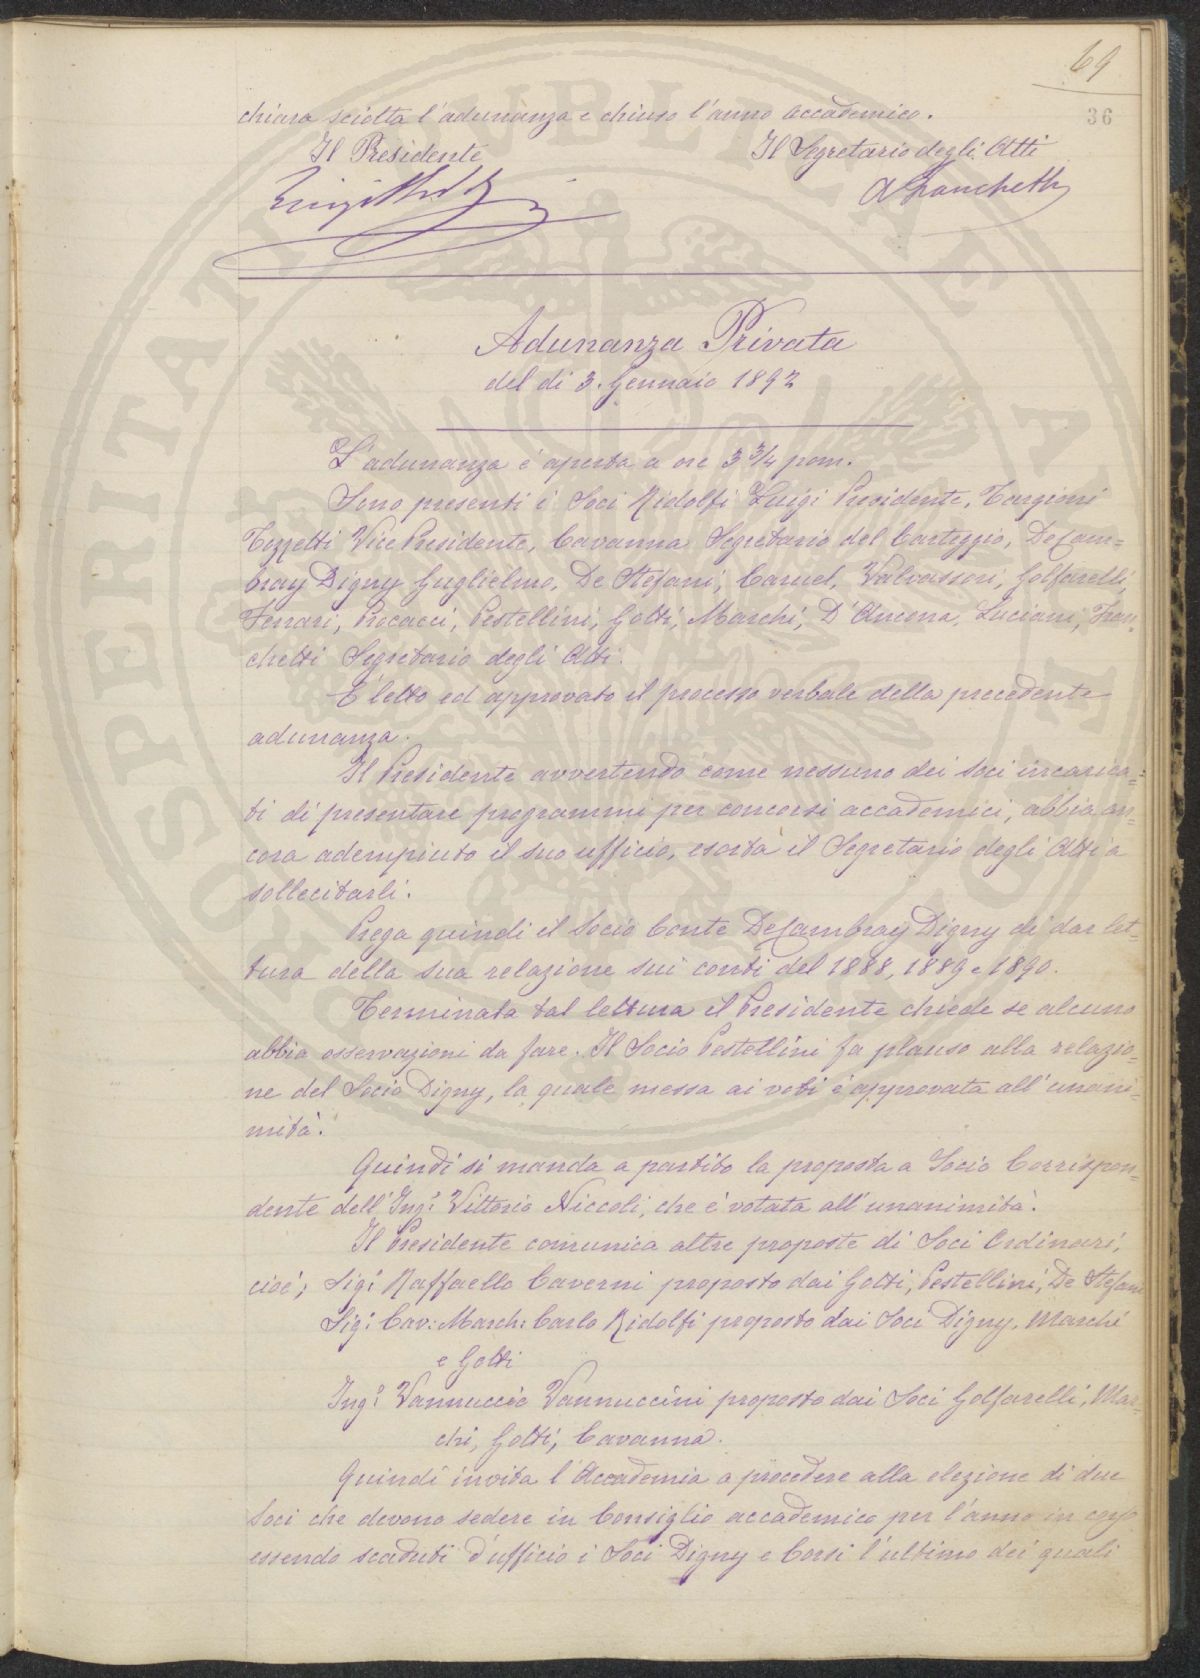 69
36
chiara sciolta l'adunanza e chiuso l'anno accademico.
Il Presidente Il Segretario degli Atti
Luigi Ridolfi A Franchetti
Adunanza Privata
del dì 3. Gennaio 1892
L'adunanza è aperta a ore 3 3/4 pom.
Sono presenti i Soci Ridolfi Luigi Presidente, Targioni
Tozzetti Vice Presidente, Cavanna Segretario del Carteggio, De Cam=
bray Digny Guglielmo, De Stefani, Caruel, Valvassori, Golfarelli,
Ferrari, Procacci, Pestellini, Gotti, Marchi, D'Ancona, Luciani, Fran=
chetti Segretario degli Atti.
E' letto ed approvato il processo verbale della precedente
adunanza.
Il Presidente avvertendo come nessuno dei Soci incarica=
ti di presentare programmi per concorsi accademici, abbia an=
cora adempiuto il suo ufficio, esorta il Segretario degli Atti a
sollecitarli.
Prega quindi il Socio Conte De Cambray Digny di dar let=
tura della sua relazione sui conti del 1888, 1889 e 1890.
Terminata tal lettura il Presidente chiede se alcuno
abbia osservazioni da fare. Il Socio Pestellini fa plauso alla relazio=
ne del Socio Digny, la quale messa ai voti è approvata all'unani=
mità.
Quindi si manda a partito la proposta a Socio Corrispon=
dente dell'Ing: Vittorio Niccoli, che è votata all'unanimità.
Il Presidente comunica altre proposte di Soci Ordinari,
cioè; Sig: Raffaello Caverni proposto dai Gotti, Pestellini, De Stefani
Sig: Cav: March: Carlo Ridolfi proposto dai Soci Digny, Marchi
e Gotti
Ing: Vannuccio Vannuccini proposto dai Soci Golfarelli, Mar=
chi, Gotti, Cavanna.
Quindi invita l'Accademia a procedere alla elezione di due
Soci che devono sedere in Consiglio accademico per l'anno in corso
essendo scaduti d'ufficio i Soci Digny e Corsi l'ultimo dei quali
PROSPERITATI PUBLICAE AUGENDAE